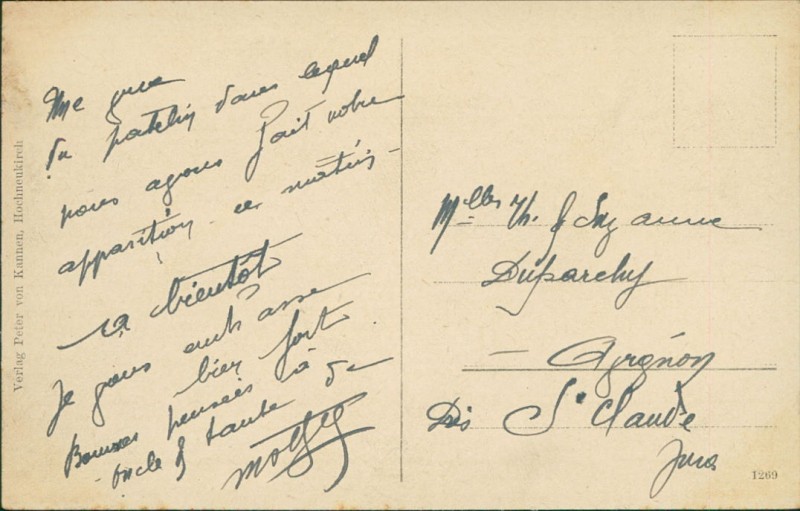 Verlag Peter von Kannen, Hochneukirch
Une vue
du patelin dans lequel
nous avons fait notre
apparition ce matin –
à bientôt
Je vous embrasse
bien fort
Bonnes pensées à
oncle & tante de
Melles Th. & Suzanne
Duparchy
– Avignon
Près St Claude
Jura
1269